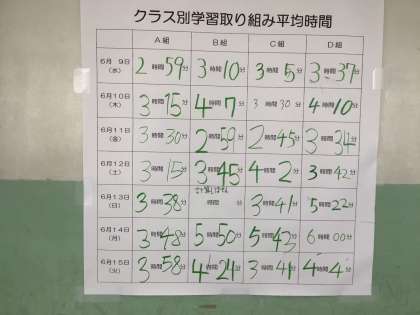 クラス別学習取り組み平均時間
A組 B組 C組 D組
6月 9日 (水) 2時間59分 3時間10分 3時間5分 3時間37分
6月10日 (木) 3時間15分 4時間7分 3時間30分 4時間10分
6月11日 (金) 3時間30分 2時間59分 2時間45分 3時間34分
6月12日 (土) 3時間15分 3時間45分 4時間2分 3時間42分
6月13日 (日) 3時間38分 時間 分 3時間41分 5時間22分
6月14日 (月) 3時間48分 5時間50分 5時間43分 6時間00分
6月15日 (火) 3時間58分 4時間21分 3時間41分 4時間4分